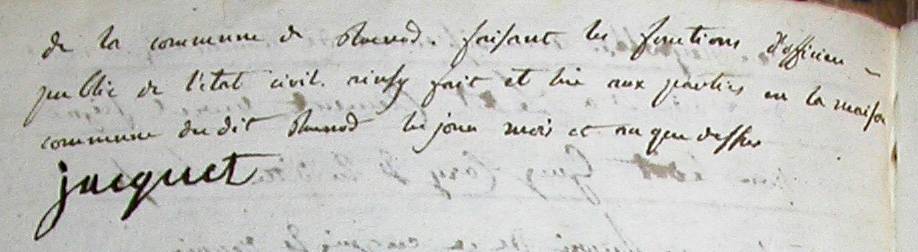 de la commune de Ruenod. faisant les fonctions d'officier
public de l'état civil. ainsy fait et lue aux parties en la maison
commune du dit Ruenod les jour mois et an que dessus
jacquet